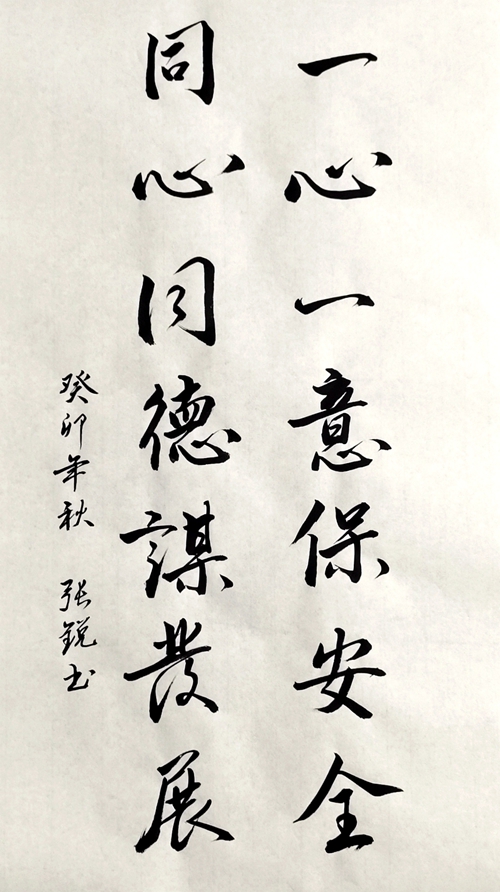 一心一意保安全
同心同德謀發展
癸卯年秋 张锐书